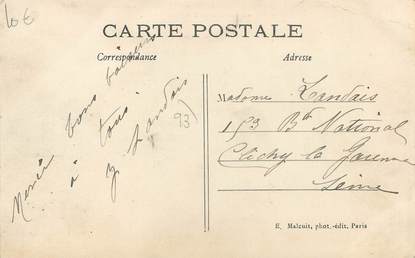 10€
CARTE POSTALE
Correspondance
Adresse
Merci bons baisers
à tous
Y Landais
93)
Madame Landais
159 Bd National
Clichy la Garenne
Seine
E. Malcuit, phot.-édit, Paris